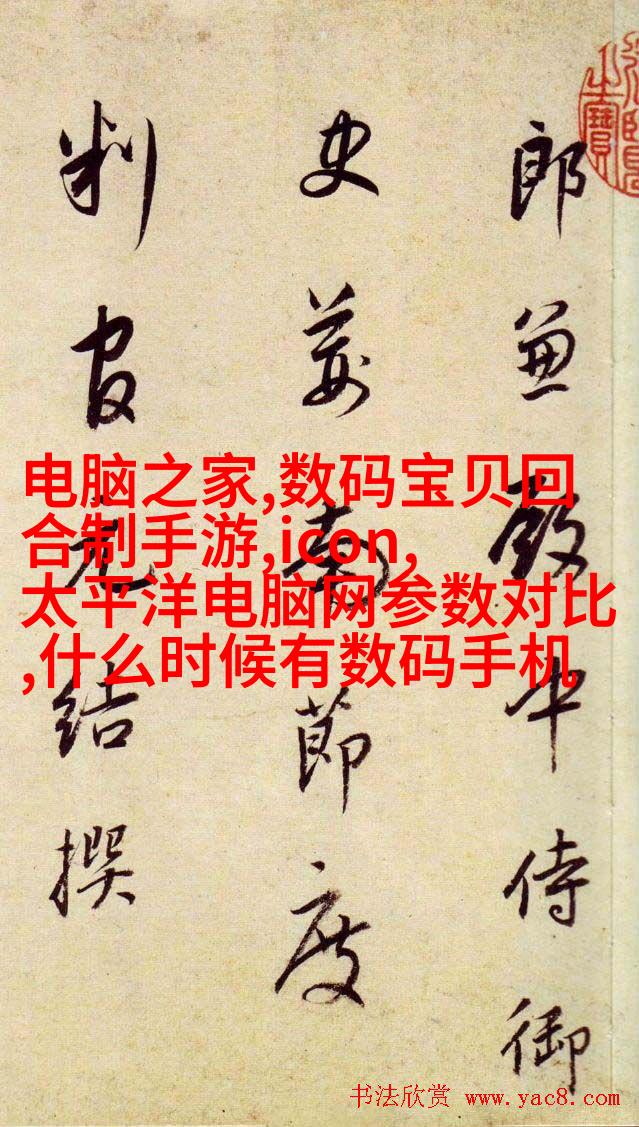 郎兼殿中侍御
史荊南節度
判官元結撰
电脑之家,数码宝贝回
合制手游,icon,
太平洋电脑网参数对比
,什么时候有数码手机
书法欣赏 www.yac8.com